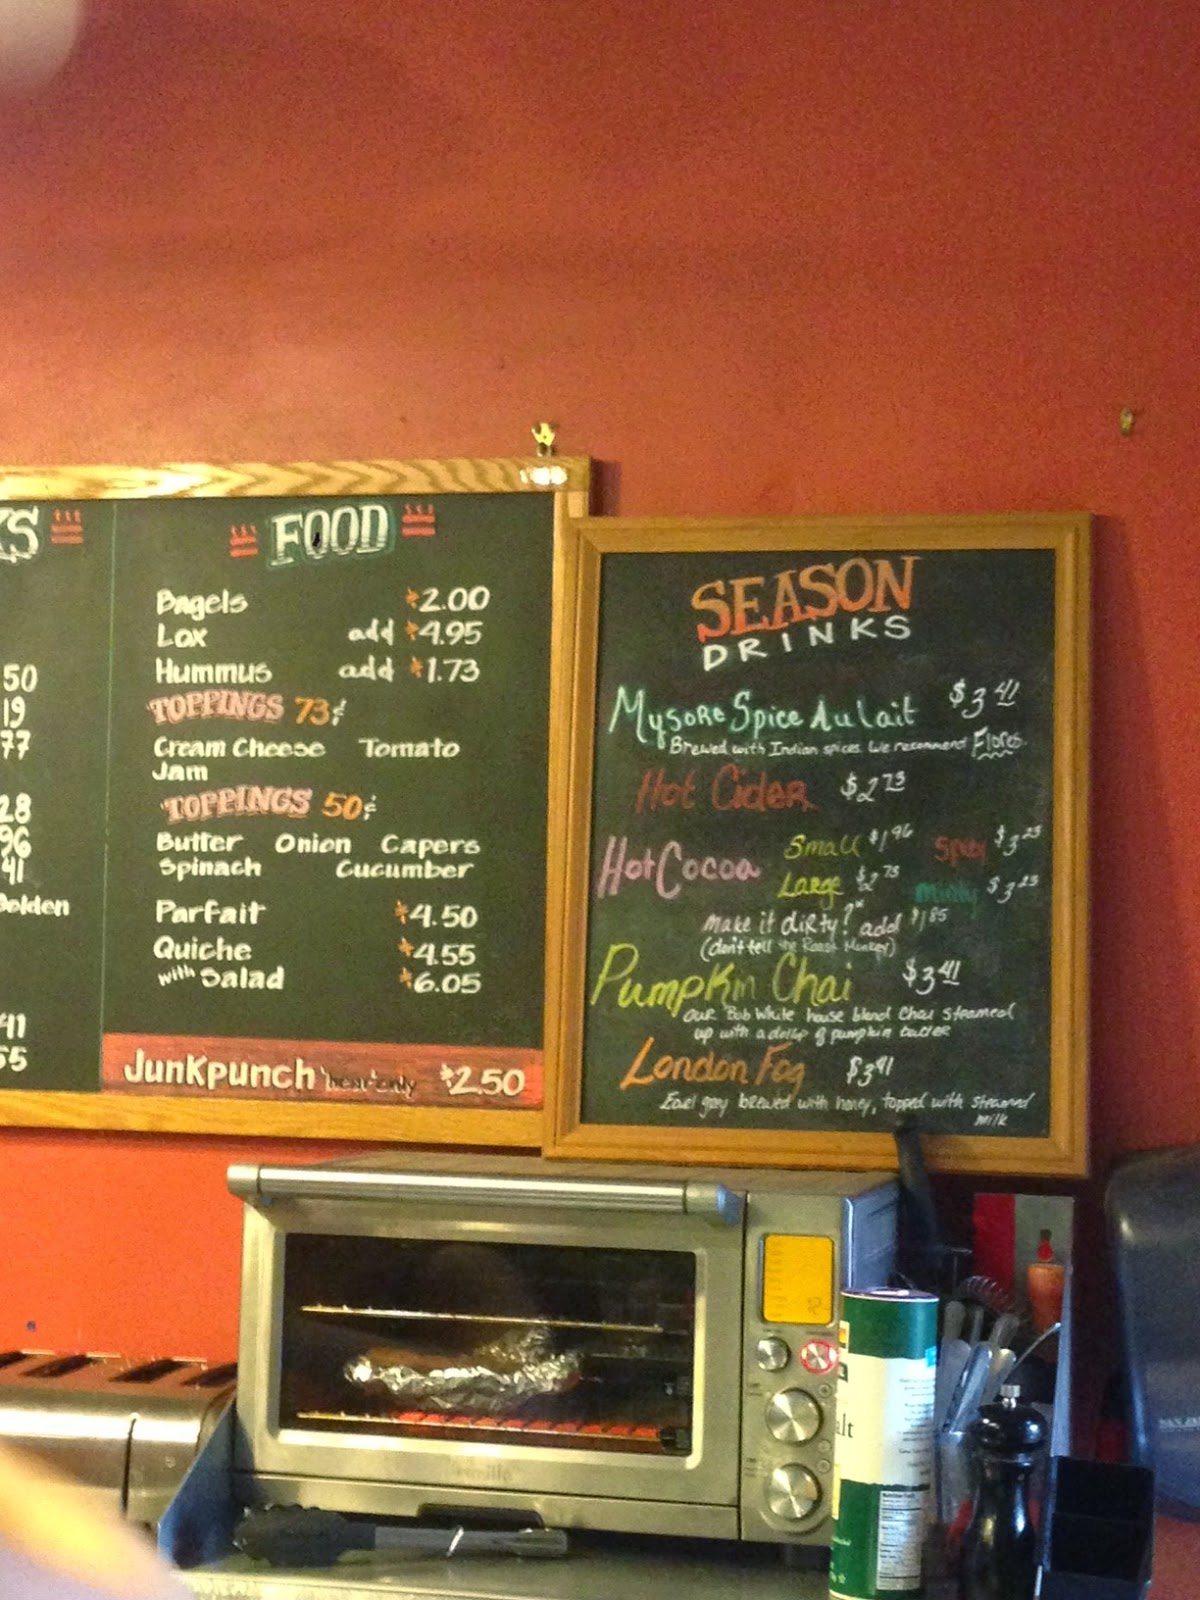 KS
50
19
77
28
96
41
Belden
41
55
FOOD
Bagels $2.00
Lox add $4.95
Hummus add $1.73
TOPPINGS 73¢
Cream Cheese Tomato
Jam
TOPPINGS 50¢
Butter Onion Capers
Spinach Cucumber
Parfait $4.50
Quiche $4.55
with Salad $6.05
Junkpunch 'hear' only $2.50
SEASON
DRINKS
Mysore Spice Au Lait $3.41
Brewed with Indian spices. We recommend Flores.
Hot Cider $2.73
Hot Cocoa Small $1.96 Spicy $3.23
Large $2.73 Minty $3.23
make it dirty?* add $1.85
(don't tell the Roast Monkey)
Pumpkin Chai $3.41
our Bob White house blend Chai steamed
up with a dollop of pumpkin butter
London Fog $3.41
Earl grey brewed with honey, topped with steamed
milk
alt